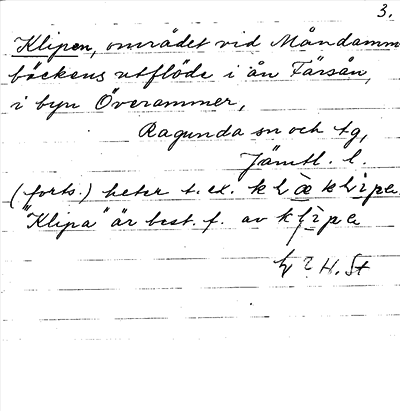 3.
Klipen, området vid Måndamm
bäckens utflöde i ån Färsån,
i byn Överammer,
Ragunda sn och tg,
Jämtl. l.
(forts.) heter t. ex.
"Klipa" är best. f. av klipa
H. St